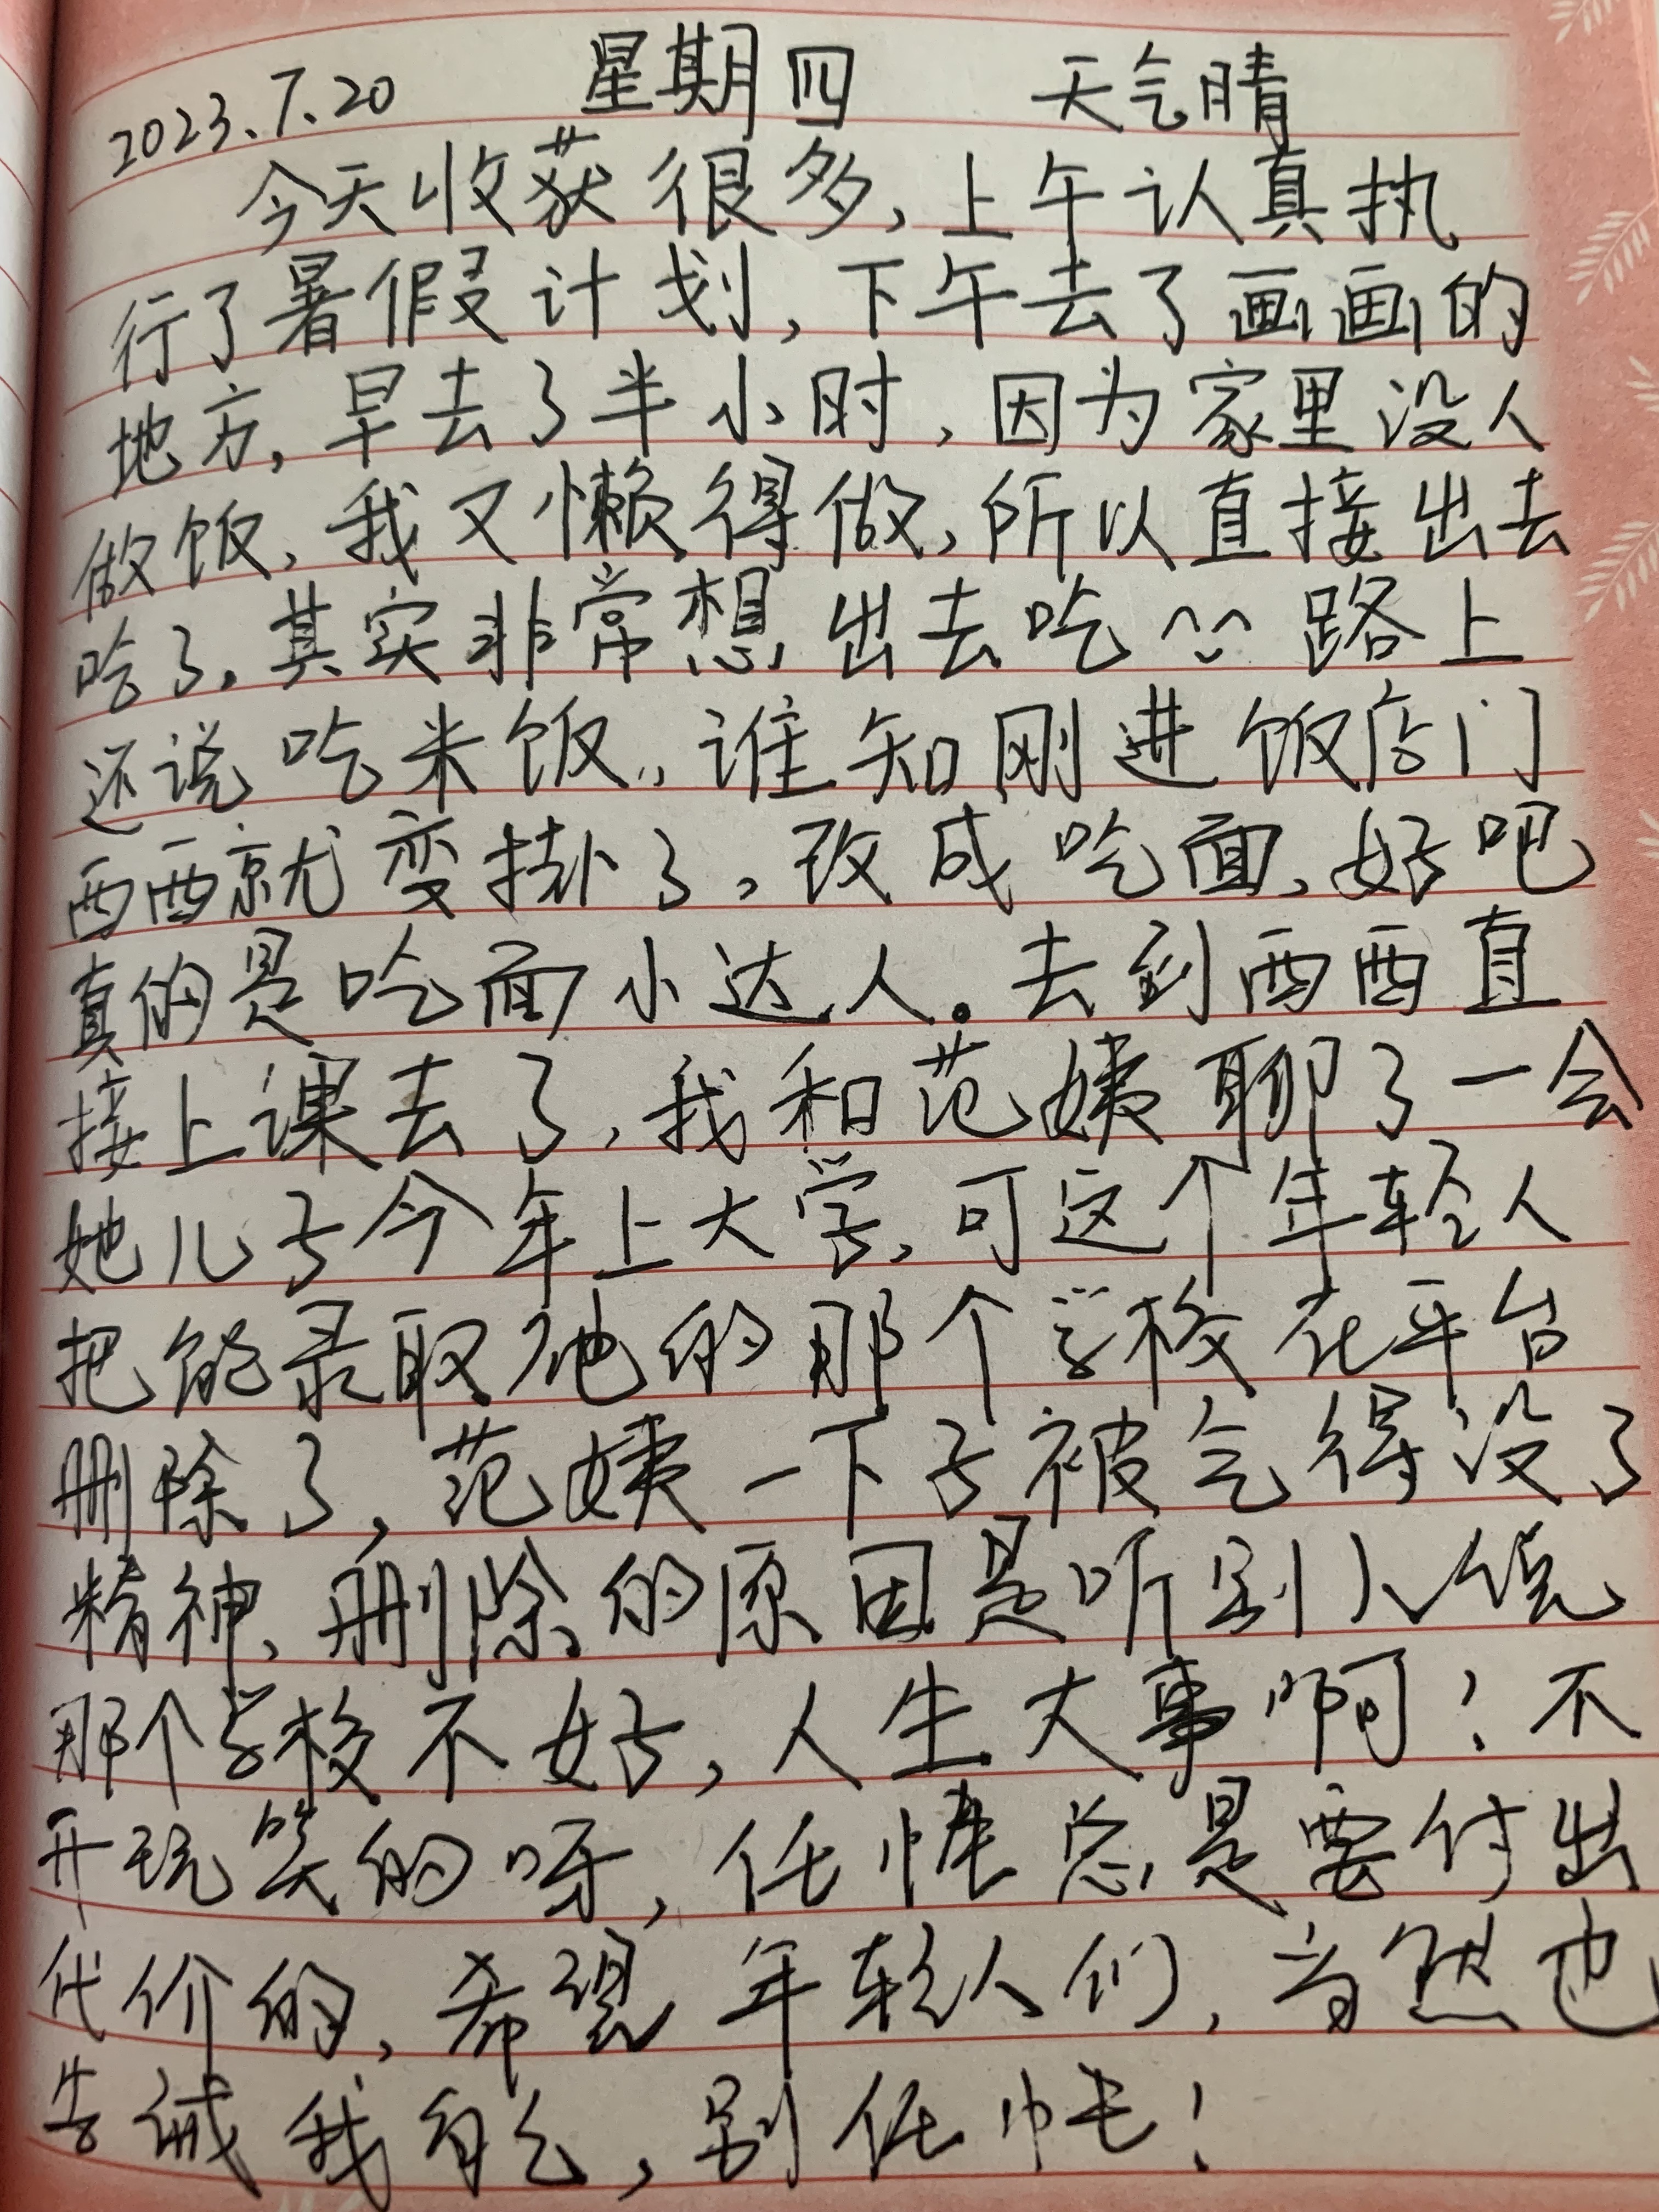 2023.7.20 星期四 天气晴
今天收获很多,上午认真执
行了暑假计划,下午去了画画的
地方,早去了半小时,因为家里没人
做饭,我又懒得做,所以直接出去
吃了。其实非常想出去吃^^路上
还说吃米饭,谁知刚进饭店门
西西就变挂了,改成吃面,好吧
真的是吃面小达人。去到西西直
接上课去了,我和范姨聊了一会
她儿子今年上大学,可这个年轻人
把能录取他的那个学校在平台
删除了,范姨一下子被气得没了
精神,删除的原因是听别人说
那个学校不好,人生大事啊!不
开玩笑的呀,任性总是要付出
代价的,希望年轻人们,当然也
告诫我自己,别任性!